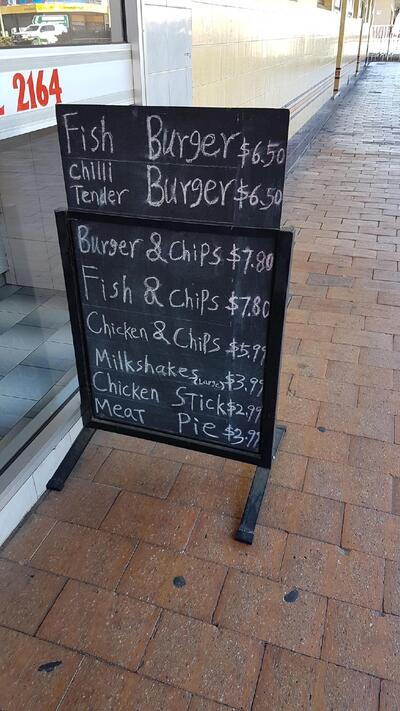 2164
Fish Burger $6.50
chilli
Tender Burger $6.50
Burger & chips $7.80
Fish & chips $7.80
Chicken & chips $5.99
Milkshakes (Large) $3.99
Chicken Stick $2.99
Meat Pie $3.99